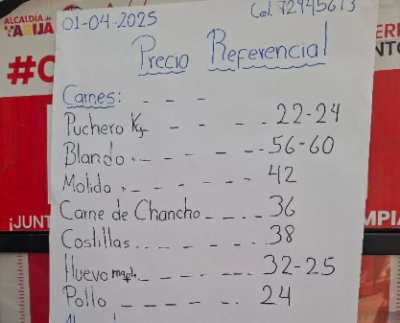 ALCALDÍA de
TARIJA
01-04-2025
Cel. 72945613
Precio Referencial
Carnes: - - -
Puchero Kg - - - . 22-24
Blando. - - - - - . 56-60
Molido . - - - - - - 42
Carne de Chancho - - . . 36
Costillas. . . - - - . 38
Huevo maple. - - - . - - . 32-25
Pollo - - - - - - 24
¡JUNT